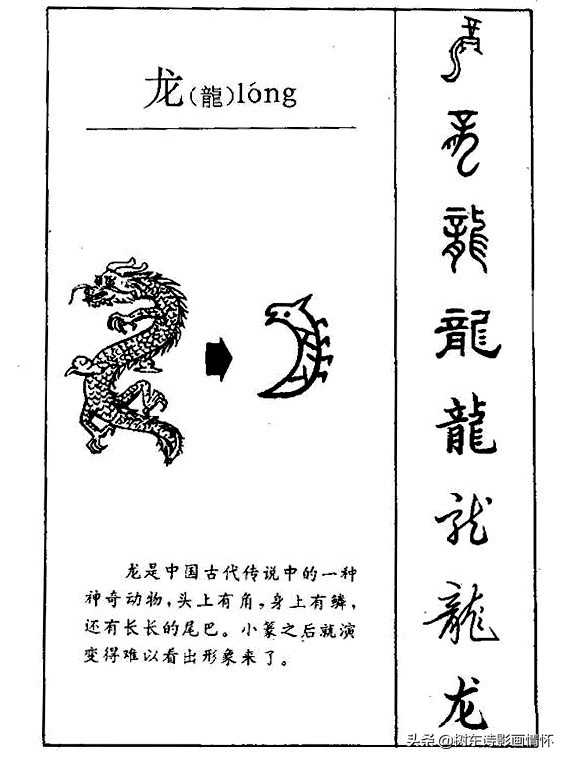 龙(龍)lóng
龙是中国古代传说中的一种
神奇动物,头上有角,身上有鳞,
还有长长的尾巴。小篆之后就演
变得难以看出形象来了。
龍
龍
龍
龍
龍
龙
龍
龙
头条@树东诗影画情怀